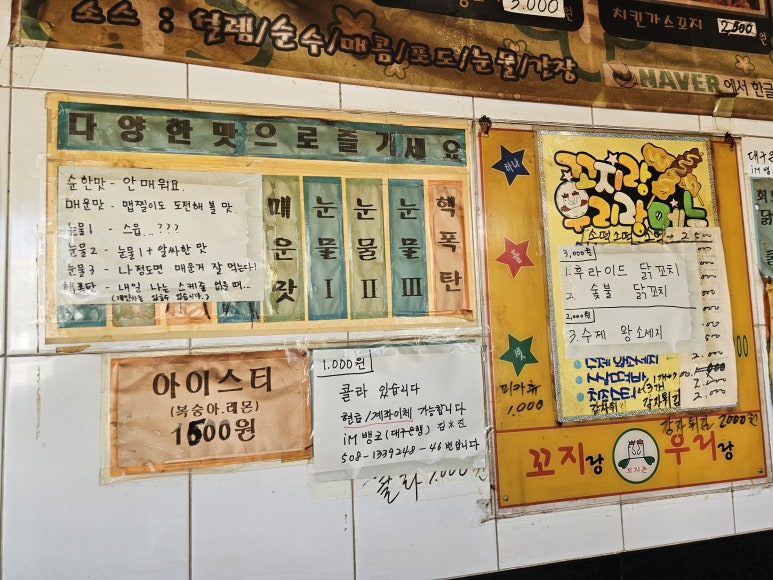 3.000원
치킨가스꼬치 2,500원
소스 : 설렘/순수/매콤/포도/눈물/간장
NAVER에서 한글
다양한맛으로즐기세요
순한맛 - 안매워요.
매운맛 - 맵찔이도 도전해 볼 맛.
눈물1 - 스읍...???
눈물2 - 눈물1 + 알싸한 맛
눈물3 - 나정도면 매운거 잘 먹는다!
핵폭탄 - 내일 나는 스케줄 없을 때...
(개인차는 있을수 있습니다.)
매운맛
눈물Ⅰ
눈물Ⅱ
눈물Ⅲ
핵폭탄
아이스티
(복숭아.레몬)
1500원
1.000원
콜라 있습니다
현금/계좌이체 가능합니다
iM 뱅크 (대구은행)
508-1339248-46 번입니다
콜라 1.000
하나
둘
셋
피카츄
1,000
꼬지랑
우리랑
3,000원
1. 후라이드 닭꼬치
2. 숯불 닭꼬치
2,000원
3. 수제 왕소세지
수제왕소세지
감자튀김
감자튀김 2000원
꼬지랑 우리랑